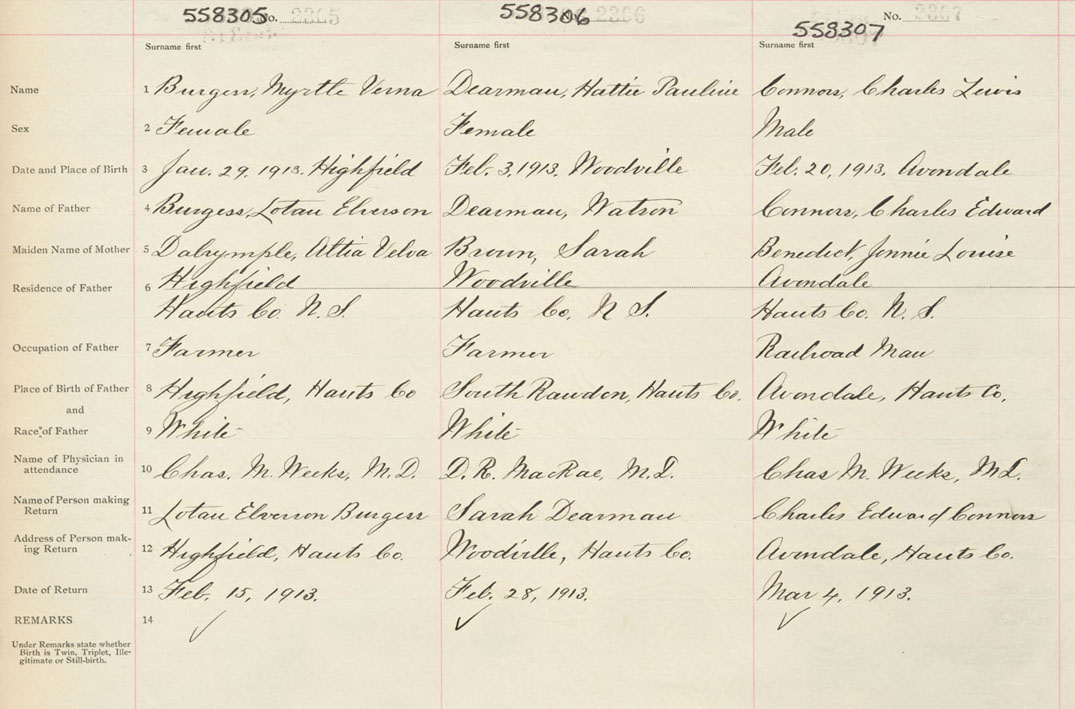 558305 No. 2365 558306 No. 2366 558307 No. 2367
Surname first Surname first Surname first
Name 1 Burgess, Myrtle Verna Dearman, Hattie Pauline Connors, Charles Lewis
Sex 2 Female Female Male
Date and Place of Birth 3 Jan. 29, 1913. Highfield Feb. 3, 1913. Woodville Feb. 20, 1913. Avondale
Name of Father 4 Burgess, Lotan Elverson Dearman, Watson Connors, Charles Edward
Maiden Name of Mother 5 Dalrymple, Altia Velva Brown, Sarah Benedict, Jennie Louise
Residence of Father 6 Highfield Woodville Avondale
Hants Co. N.S. Hants Co. N S. Hants Co. N.S.
Occupation of Father 7 Farmer Farmer Railroad Man
Place of Birth of Father 8 Highfield, Hants Co South Rawdon, Hants Co. Avondale, Hants Co.
and
Race of Father 9 White White White
Name of Physician in
attendance 10 Chas. M. Weeks, M.D. D.R. MacRae, M.D. Chas M. Weeks, M.D.
Name of Person making
Return 11 Lotan Elverson Burgess Sarah Dearman Charles Edward Connors
Address of Person mak-
ing Return 12 Highfield, Hants Co. Woodville, Hants Co. Avondale, Hants Co.
Date of Return 13 Feb. 15, 1913. Feb. 28, 1913. Mar 4, 1913.
REMARKS 14 ✓ ✓ ✓
Under Remarks state whether
Birth is Twin, Triplet, Ille-
gitimate or Still-birth.